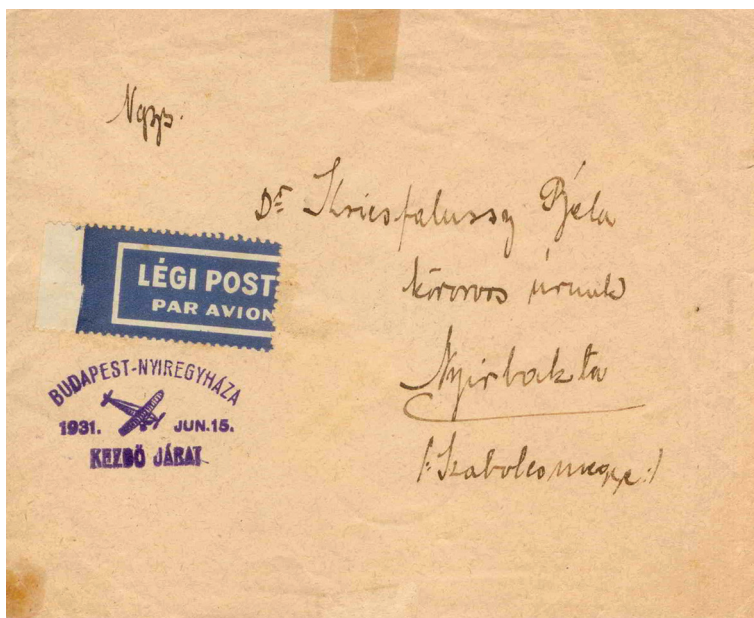 Ngys.
Dr Kricsfalussy Béla
körorvos úrnak
Nyirbakta
/:Szabolcsmegye:/
LÉGI POST
PAR AVION
BUDAPEST-NYIREGYHÁZA
1931. JUN.15.
KEZDŐ JÁRAT